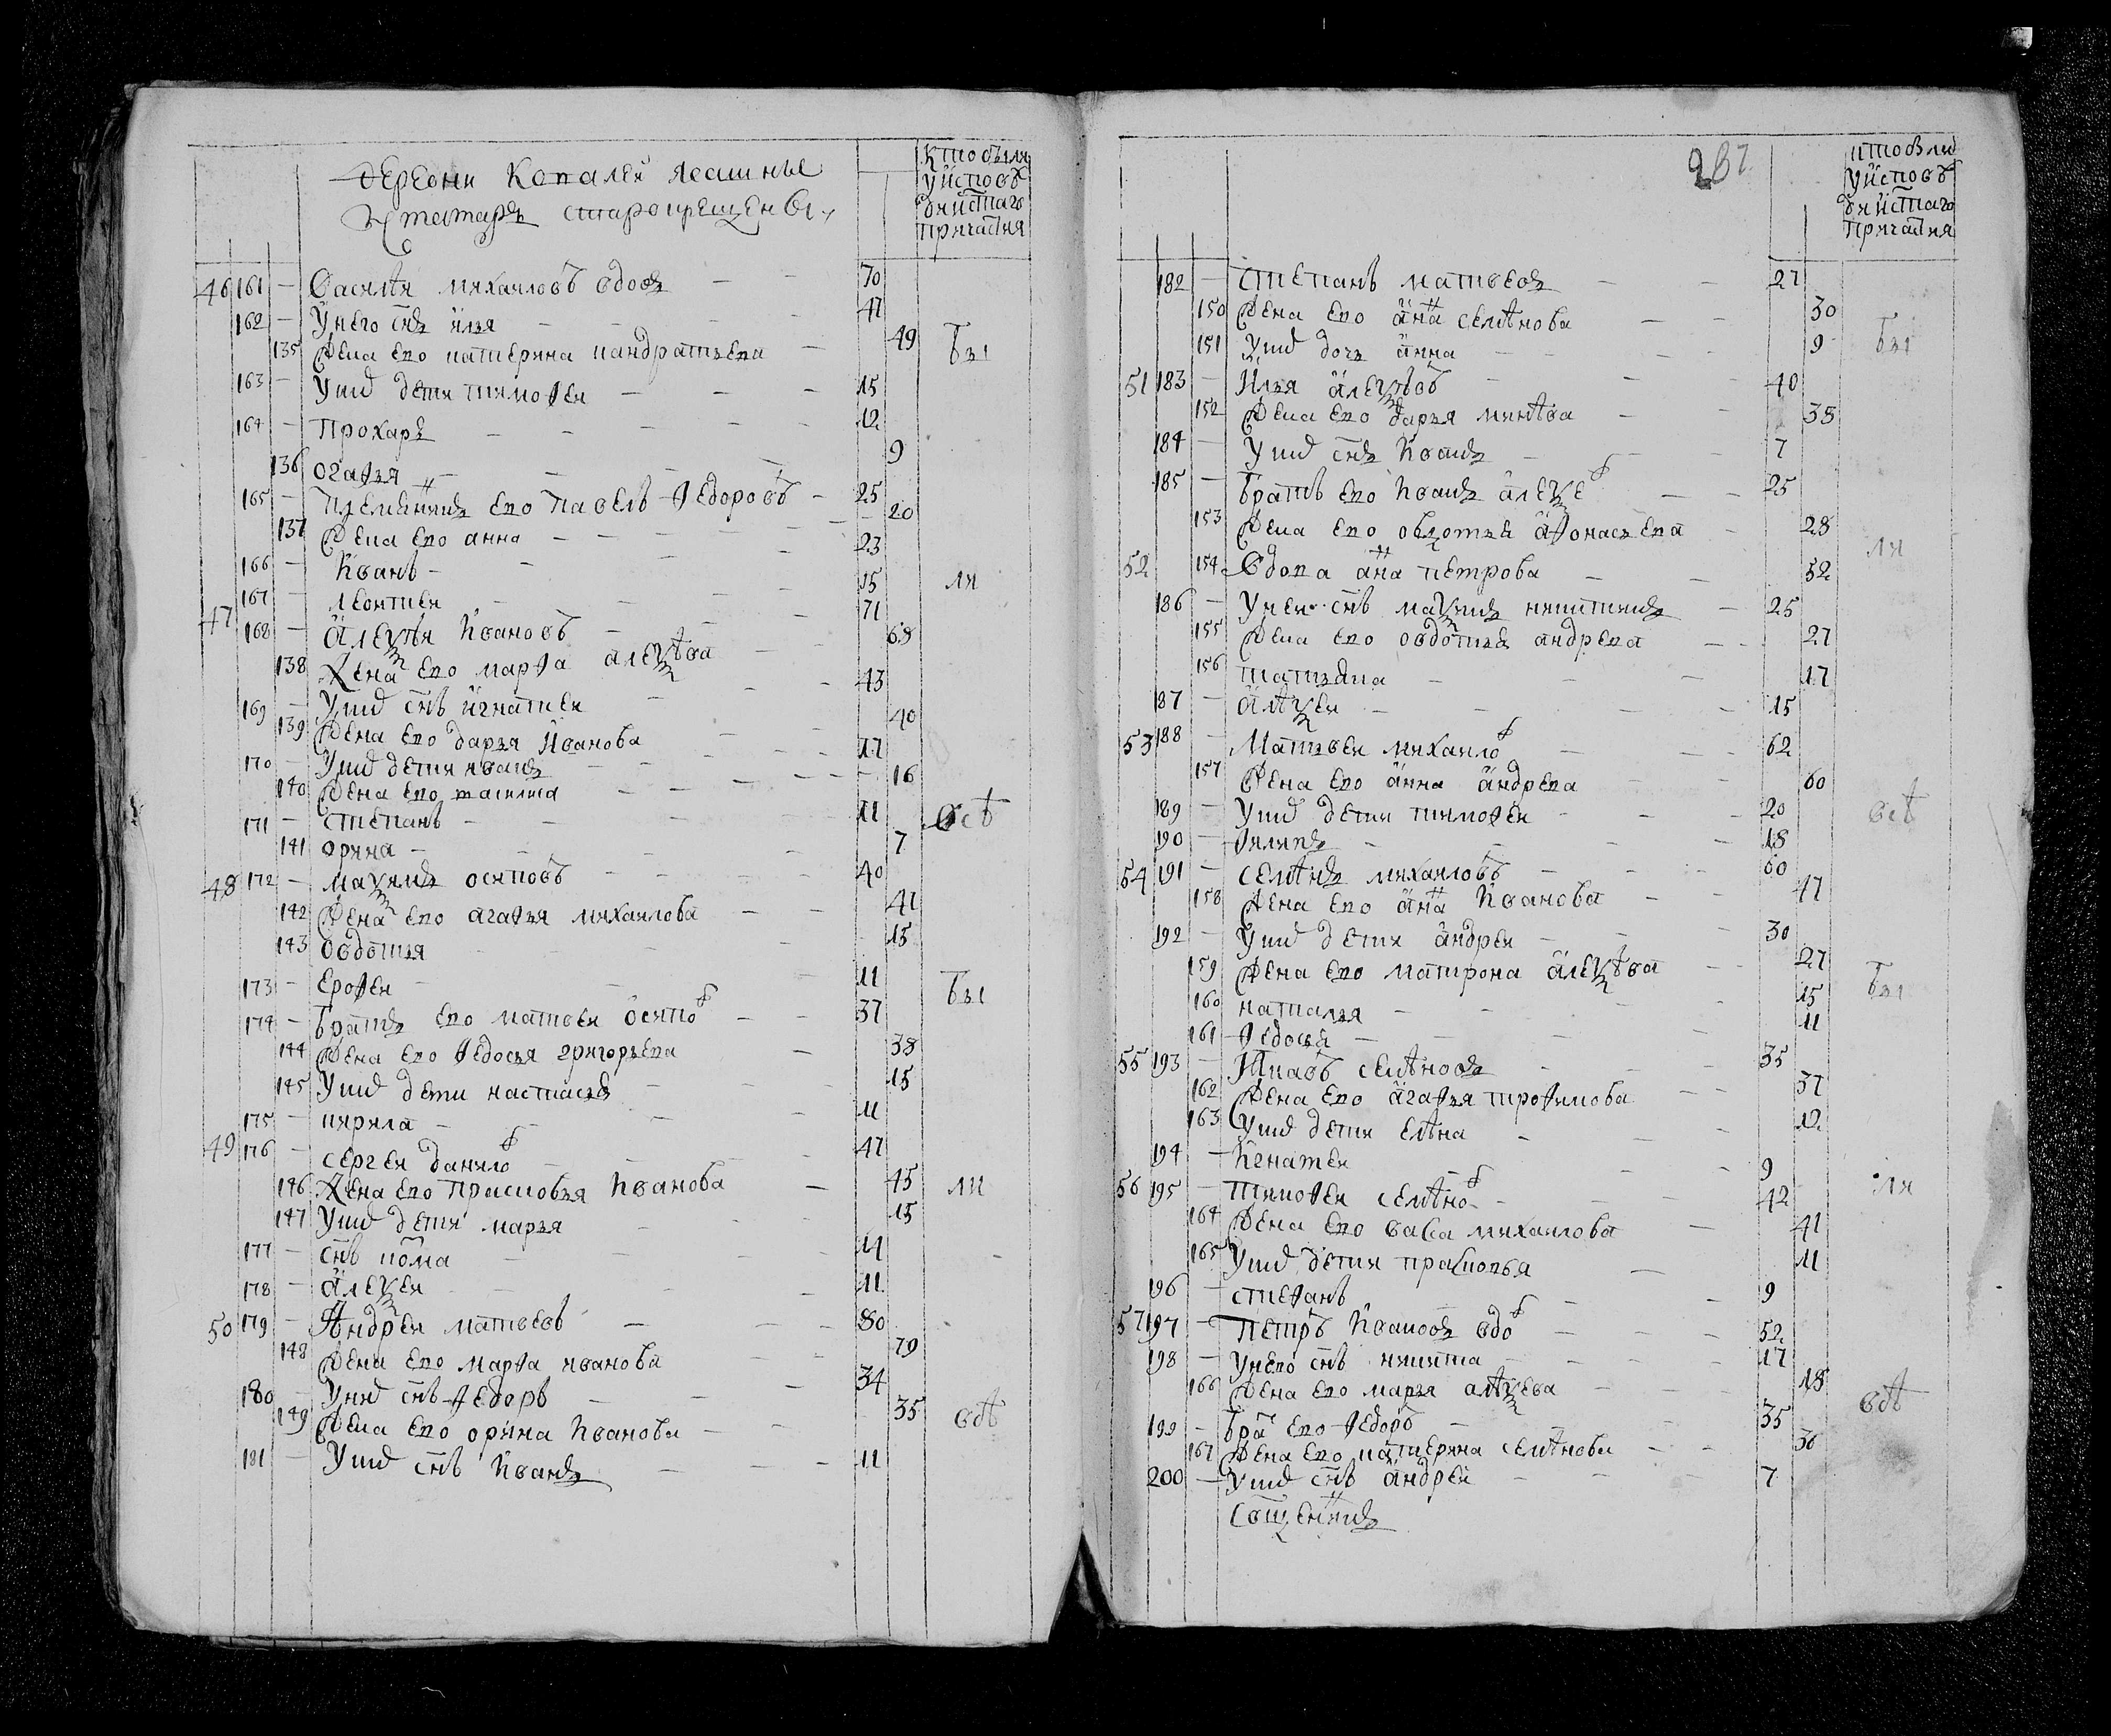 деревни Копалеи ясашные
ис татаръ старокрещены
кто были
у исповѣ
ди и стаго
причастия
46 161 – Василеи михаиловъ вдовъ 70
162 – У него снъ илья 47
135 Жена ево катерина кандратьева 49 бы
163 – У нихъ дети тимофеи 15
164 – Прохаръ 12
136 огафья 9
165 – племянникъ ево павелъ федоровъ 25
137 Жена ево анна 20
166 – Иванъ 23
167 – леонтеи 15 ли
47 168 – алексеи Ивановъ 71
138 Жена ево марфа алексѣва 68
169 – У нихъ снъ игнатеи 43
139 Жена ево дарья Иванова 40
170 – У нихъ дети иванъ 17
140 Жена ево 16
171 – степанъ 11 всѣ
141 орина 7
48 172 – максимъ осиповъ 40
142 Жена ево агафья михаилова 41
143 овдотья 15
173 – ерофеи 11 бы
174 – братъ ево матвеи осипо 37
144 Жена ево федосья григорьева 38
145 У нихъ дети настасья 15
175 – кирила 11
49 176 – сергеи данило 47
146 Жена ево прасковья Иванова 45 ли
147 У нихъ дети марья 15
177 – снъ кома 14
178 – алексеи 11
50 179 – Андреи матвеевъ 80
148 Жена ево марфа иванова 79
180 – У них снъ федоръ 34
149 Жена ево орина Иванова 35 всѣ
181 – У нихъ снъ Иванъ 11
287
кто были
у исповѣ
ди и стаго
причастия
182 – степанъ матвеевъ 27
150 Жена ево анна семѣнова 30
151 У нихъ дочь анна 9 бы
51 183 – Илья алексѣвъ 40
152 Жена ево дарья минѣва 35
184 – У нихъ снъ Иванъ 7
185 – братъ ево Иванъ алексе 25
153 Жена ево овдотья афонасьева 28 ли
52 154 Вдова анна петрова 52
186 – У нея снъ максимъ никитинъ 25
155 Жена ево овдотья андрева 27
156 татьяна 17
187 – алѣксеи 15
53 188 – Матвеи михаило 62
157 Жена ево анна андрева 60
189 – У нихъ дети тимофеи 20 всѣ
190 – филипъ 18
54 191 – семѣнъ михаиловъ 60
158 Жена ево анна Иванова 47
192 – У нихъ дети андреи 30
159 Жена ево матрона алексѣва 27
160 наталья 15 бы
161 федосья 11
55 193 – Яковъ семѣновъ 35
162 Жена ево агафья трофимова 37
163 У нихъ дети елѣна 12
194 – Игнатеи 9
56 195 – тимофеи семѣно 42 ли
164 Жена ево васса михаилова 41
165 У нихъ дети прасковья 11
196 – стефанъ 9
57 197 – Петръ Ивановъ вдо 52
198 – У него снъ никита 17
166 Жена ево марья алѣксева 18 всѣ
199 – бра ево федоръ 35
167 Жена ево катерина семѣнова 36
200 – У нихъ снъ андреи 7
Священникъ